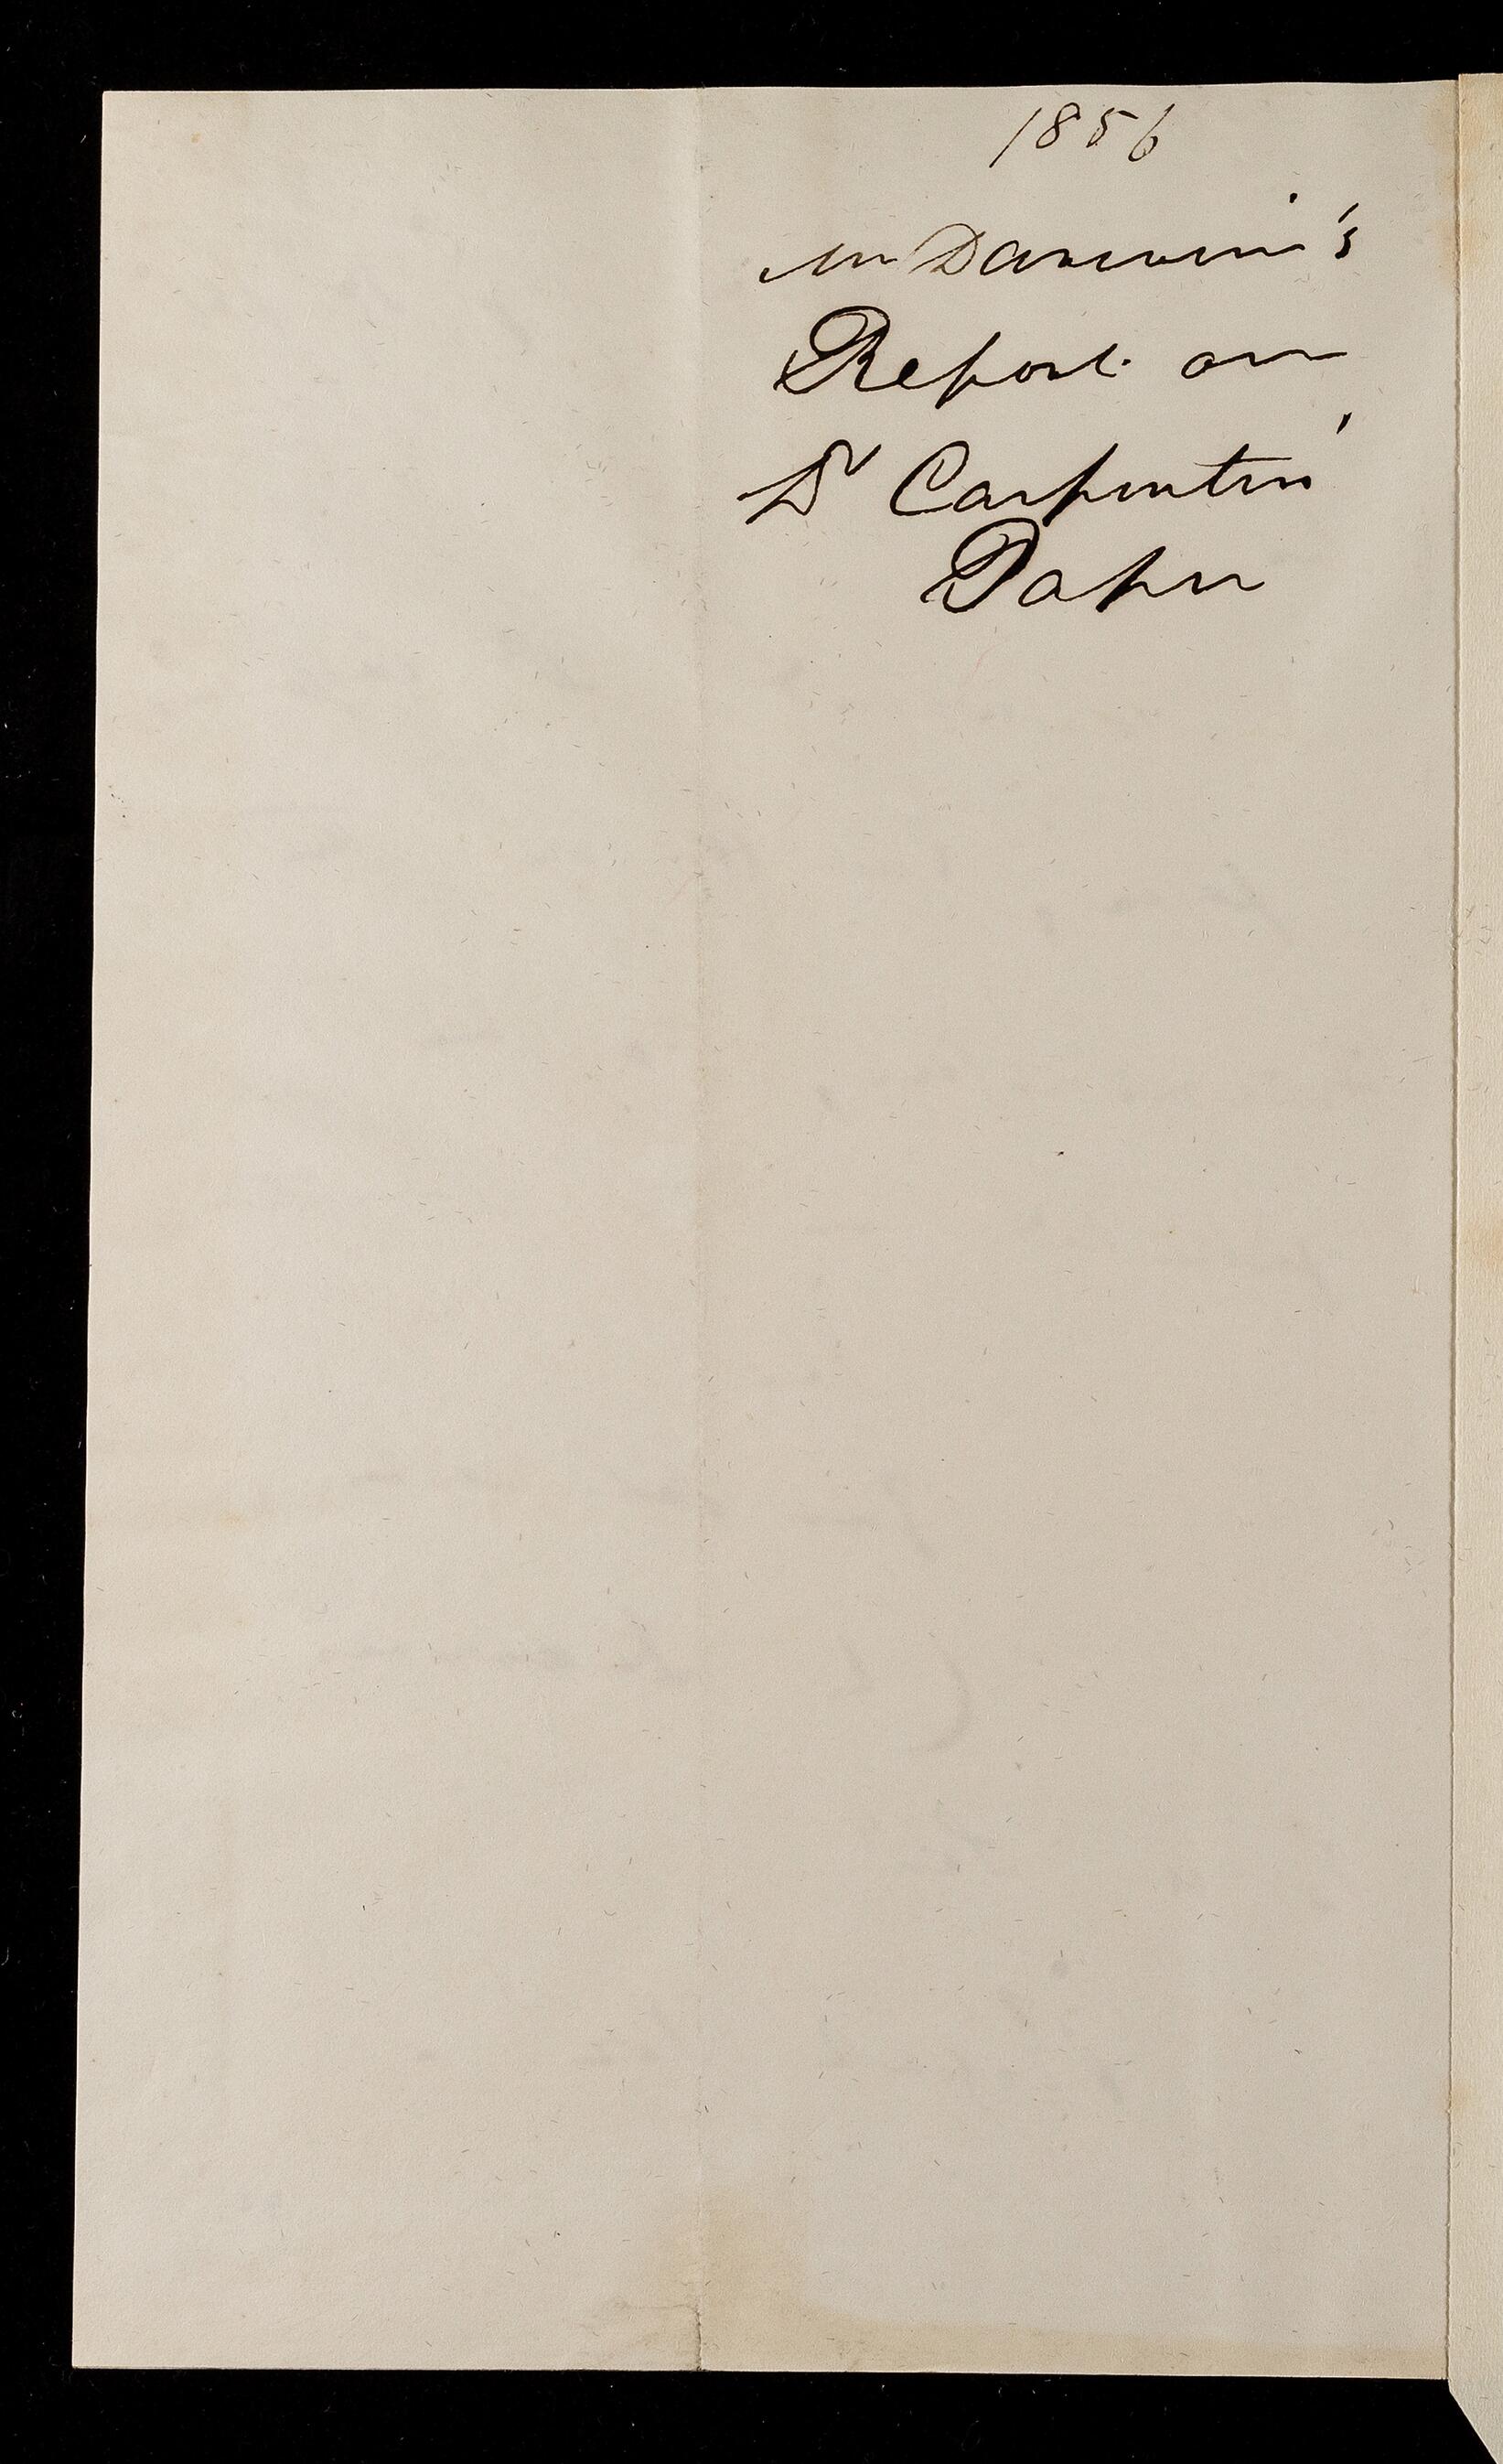 1856
Mr Darwin's
Report on
Dr Carpenters'
Paper